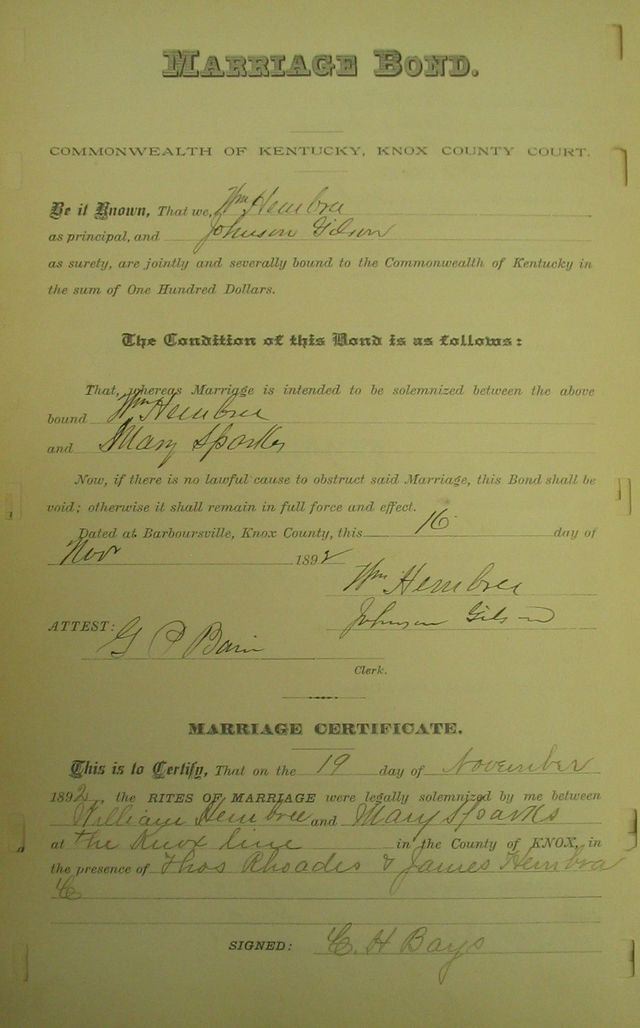 MARRIAGE BOND.
COMMONWEALTH OF KENTUCKY, KNOX COUNTY COURT.
Be it Known, That we, Wm Hembree
as principal, and Johnson Gilson
as surety, are jointly and severally bound to the Commonwealth of Kentucky in
the sum of One Hundred Dollars.
The Condition of this Bond is as follows:
That, whereas Marriage is intended to be solemnized between the above
bound Wm Hembree
and Mary Sparks
Now, if there is no lawful cause to obstruct said Marriage, this Bond shall be
void; otherwise it shall remain in full force and effect.
Dated at Barboursville, Knox County, this 16 day of
Nov 1892
Wm Hembree
ATTEST: Johnson Gilson
G P Bain
Clerk.
MARRIAGE CERTIFICATE.
This is to Certify, That on the 19 day of November
1892, the RITES OF MARRIAGE were legally solemnized by me between
William Hembree and Mary Sparks
at the Knox line in the County of KNOX, in
the presence of Thos Rhoades & James Hembra
&
SIGNED: C. H Bays